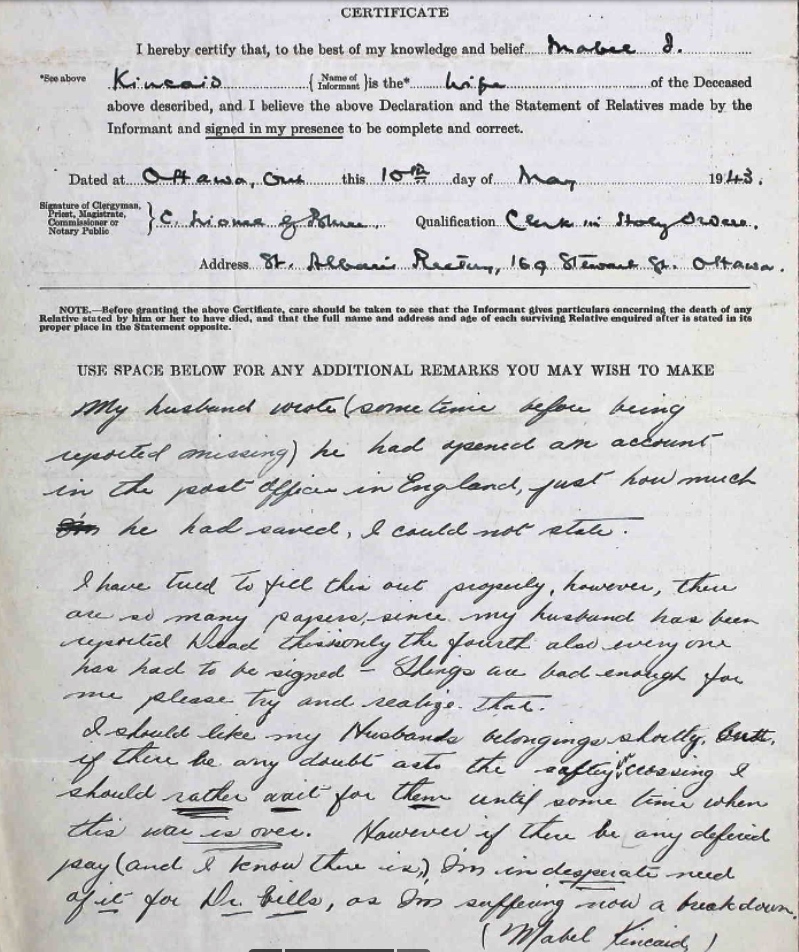 CERTIFICATE
I hereby certify that, to the best of my knowledge and belief Mabel I.
*See above Kincaid {Name of Informant} is the* wife of the Deceased
above described, and I believe the above Declaration and the Statement of Relatives made by the
Informant and signed in my presence to be complete and correct.
Dated at Ottawa, Ont this 10th day of May 1943.
Signature of Clergyman, Priest, Magistrate, Commissioner or Notary Public } C. Qualification Clerk in Holy Orders.
Address St. Alban's Rectory, 169 Stewart St. Ottawa.
NOTE.—Before granting the above Certificate, care should be taken to see that the Informant gives particulars concerning the death of any
Relative stated by him or her to have died, and that the full name and address and age of each surviving Relative enquired after is stated in its
proper place in the Statement opposite.
USE SPACE BELOW FOR ANY ADDITIONAL REMARKS YOU MAY WISH TO MAKE
My husband wrote (sometime before being
reported missing) he had opened an account
in the post office in England, just how much
he had saved, I could not state.
I have tried to fill this out properly, however, there
are so many papers, since my husband has been
reported Dead this is only the fourth also everyone
has had to be signed – Things are bad enough for
me please try and realize that.
I should like my Husbands belongings shortly, But,
if there be any doubt as to the saftey of crossing I
should rather wait for them until some time when
this war is over. However if there be any defered
pay (and I know there is), I'm in desperate need
of it for Dr. Bills, as I'm suffering now a breakdown.
(Mabel Kincaid)